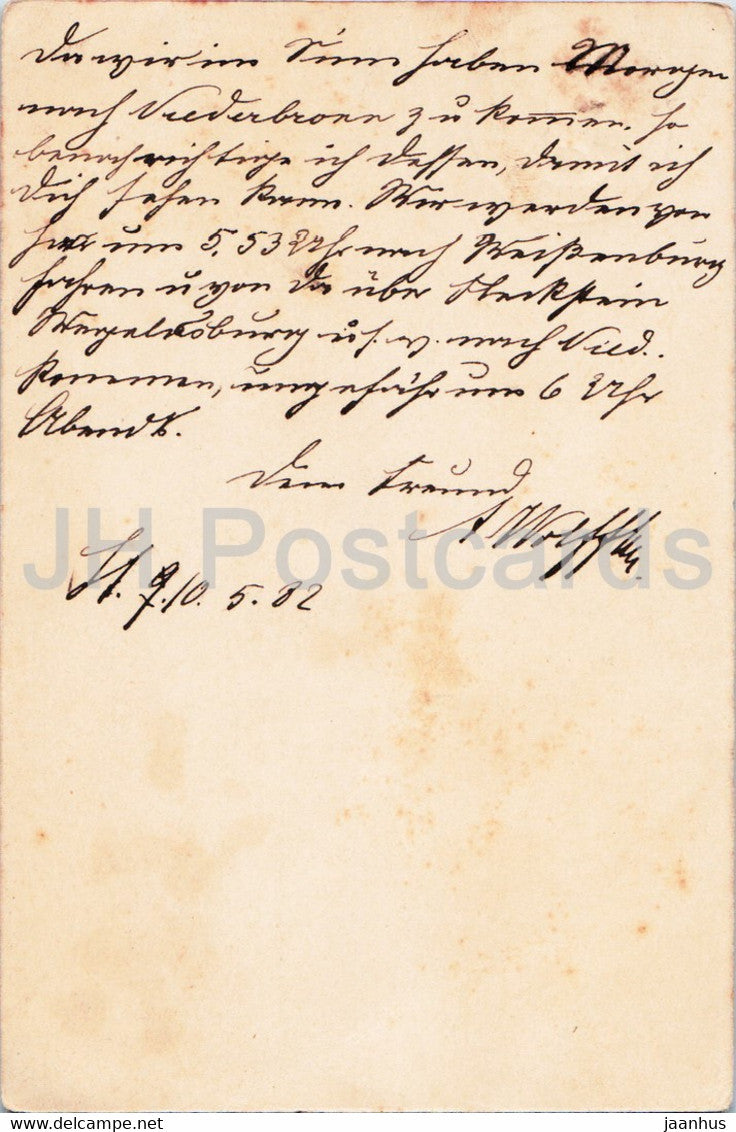 Da wir im Sinn haben Morgen
nach Niederbronn zu kommen, so
benachrichtige ich dessen, damit ich
Dich sehen kann. Wir werden von
hier um 5.53 Uhr nach Weißenburg
fahren u von da über Fleckstein
Wegelnburg u.s.w. nach Nied.
kommen, ungefähr um 6 Uhr
Abends.
Dein Freund
A Wolff
St. 10. 5. 82
JH Postcards
hippostcard.com
jaanhus